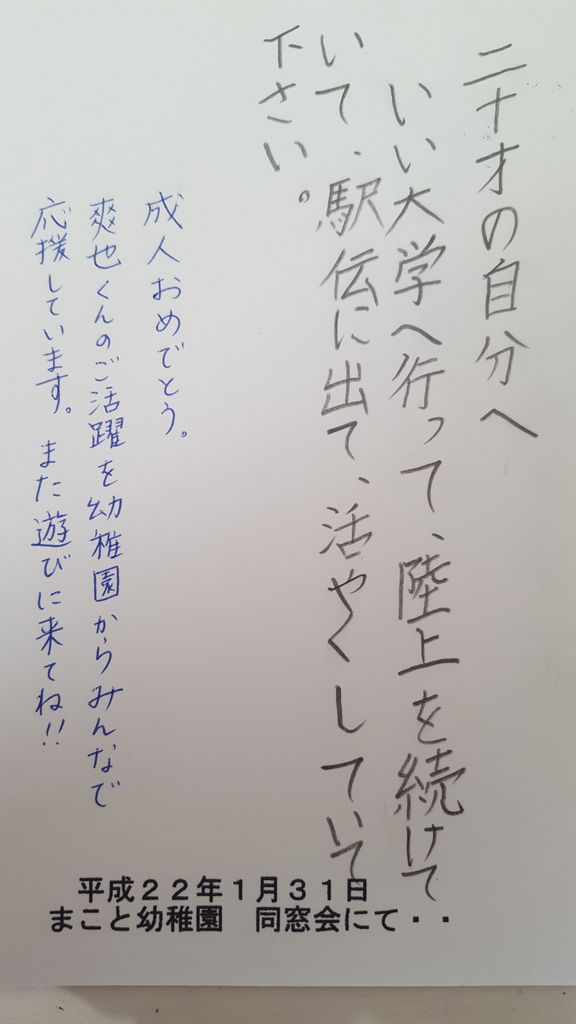 二十才の自分へ
いい大学へ行って、陸上を続けて
いて、駅伝に出て、活やくしていて
下さい。
成人おめでとう。
爽也くんのご活躍を幼稚園からみんなで
応援しています。また遊びに来てね!!
平成22年1月31日
まこと幼稚園　同窓会にて・・